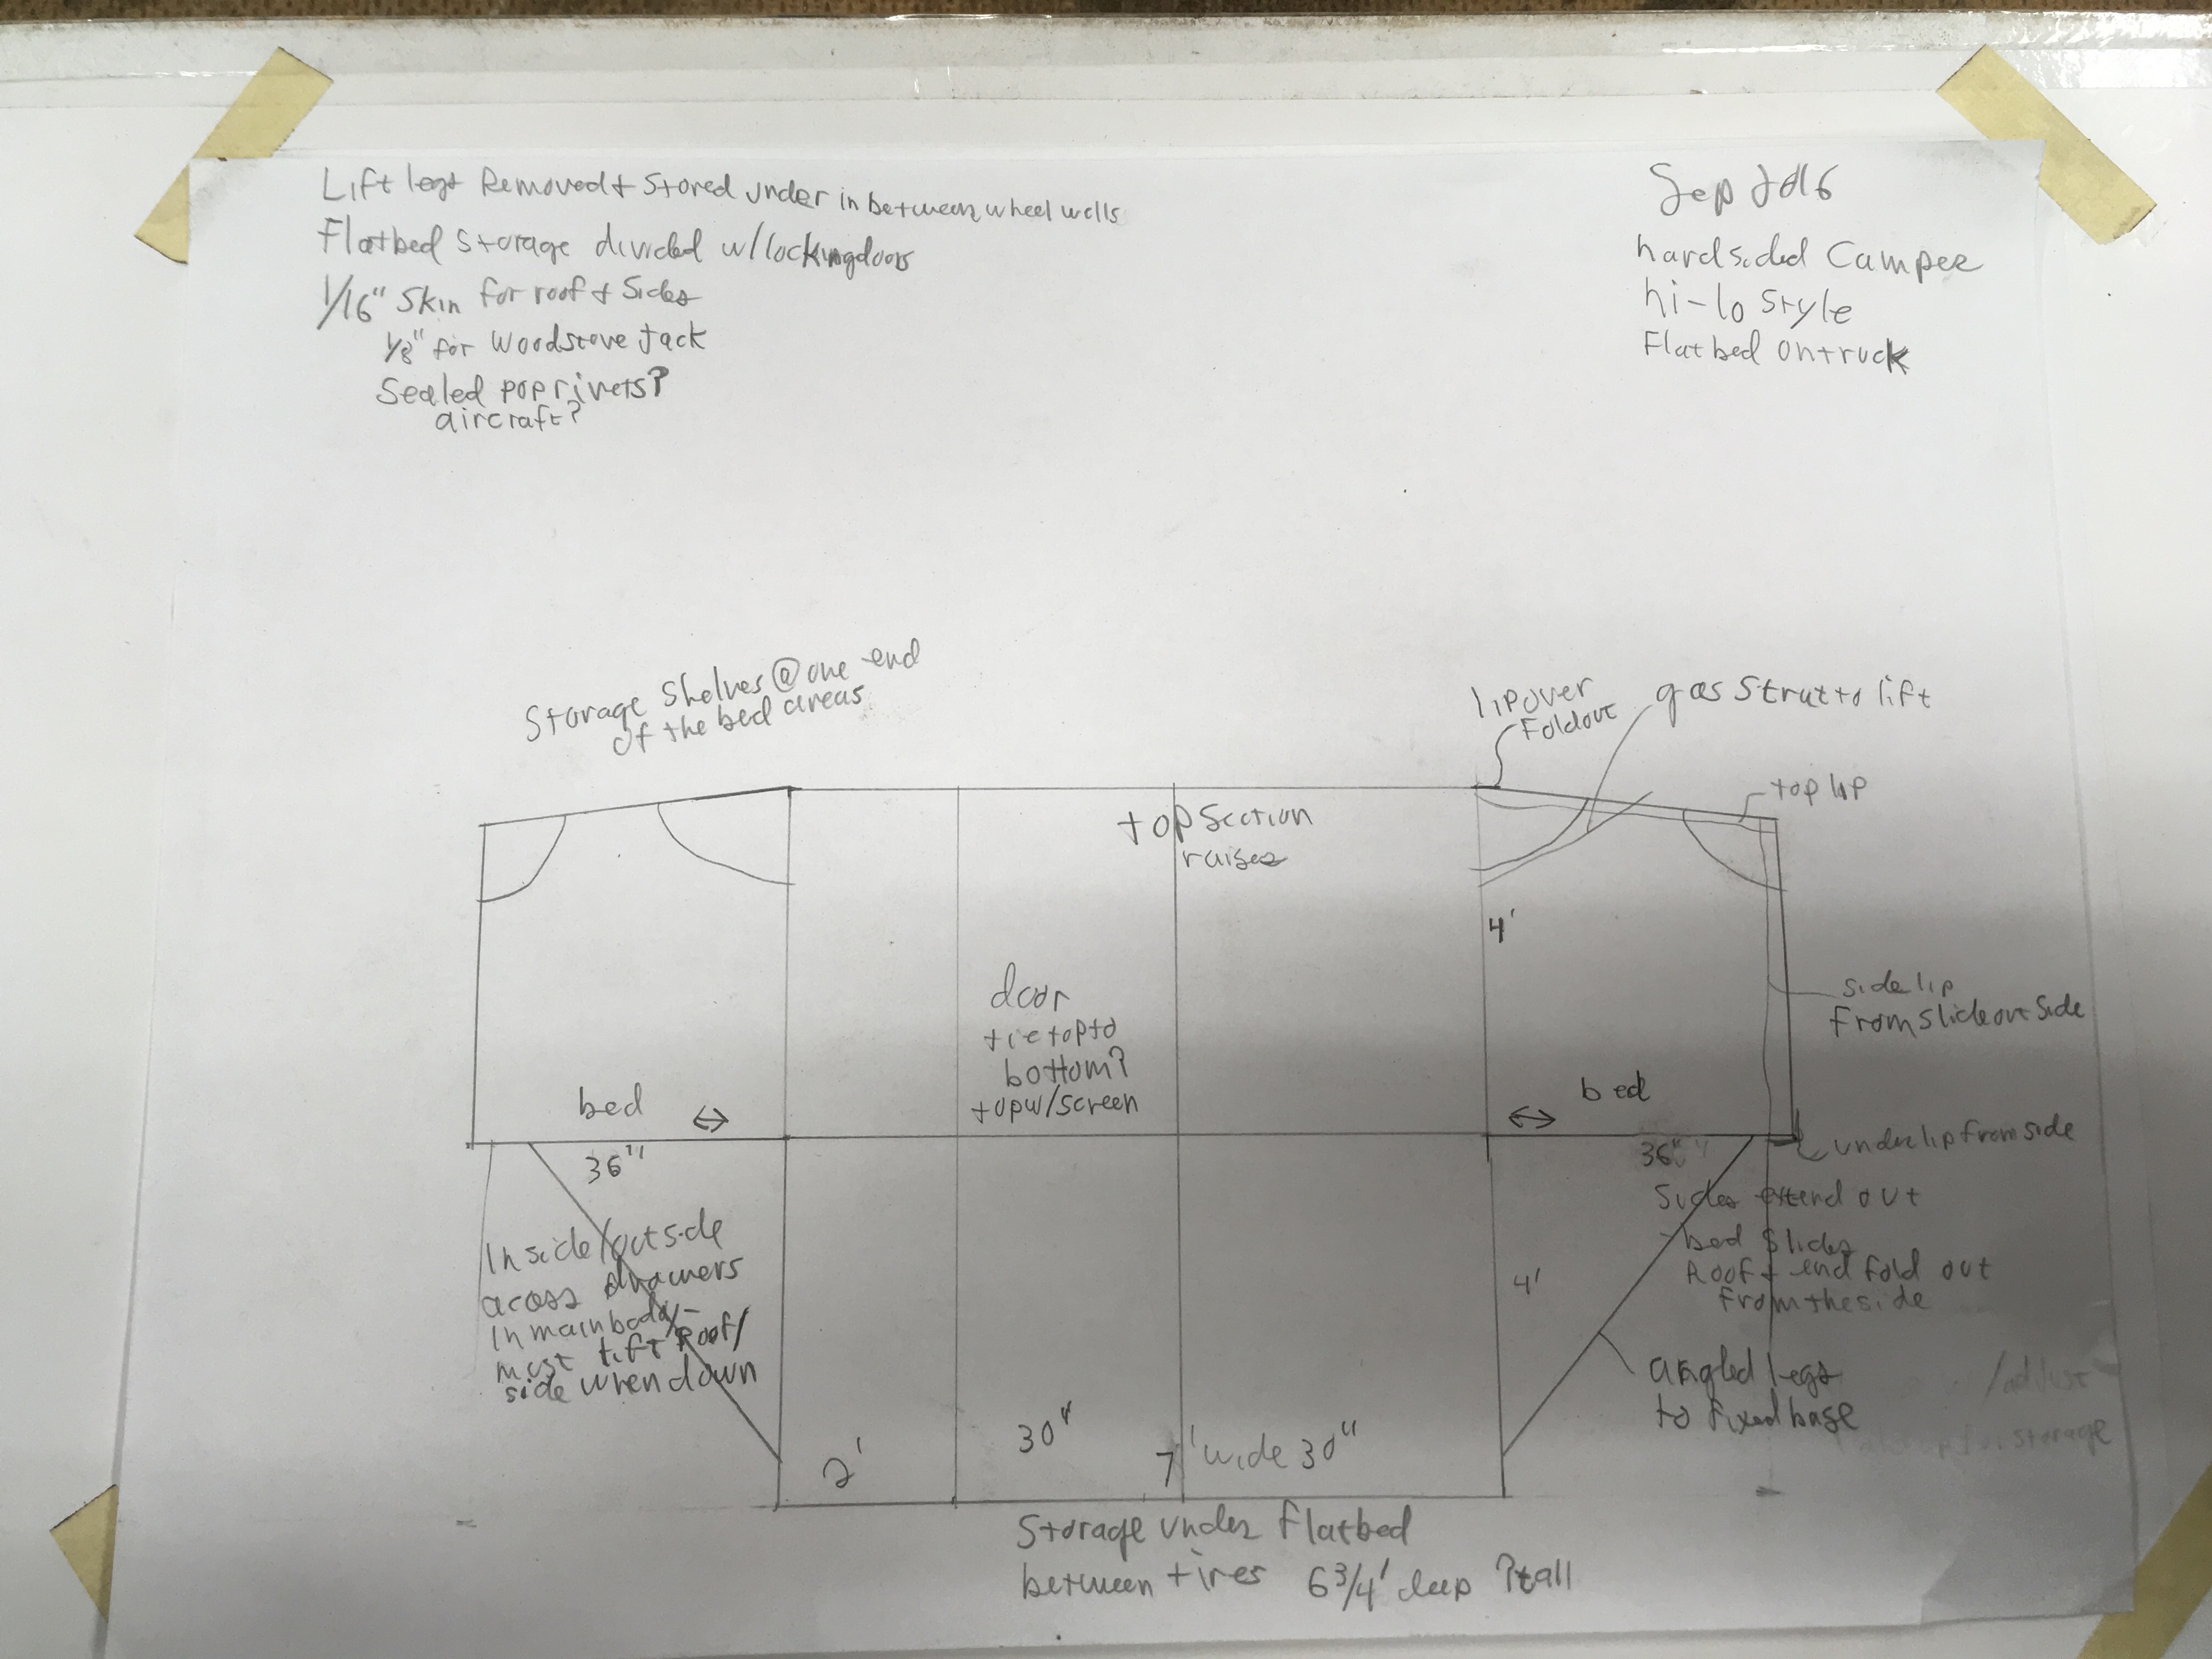 Lift legs Removed & Stored under in between wheel wells
Flatbed Storage divided w/lockingdoors
1/16" Skin for roof & Sides
1/8" for Woodstove Jack
Sealed pop rivets?
aircraft?
Sep 2016
hardsided Camper
hi-lo style
Flatbed on truck
Storage Shelves @ one end
of the bed areas
lip over
Foldout
gas Strut to lift
top lip
top Section
raises
4'
door
tie top to
bottom?
top w/screen
side lip
From slideout Side
bed ↔
↔ bed
36"
36"
under lip from side
Inside/outside
acoss drawers
In main body -
must lift Roof/
side when down
Sides extend out
- bed Slides
Roof & end fold out
From the side
4'
angled legs
to fixed base
/adjust
storage
2'
30"
7' wide 30"
Storage under Flatbed
between tires 6 3/4' deep ?tall